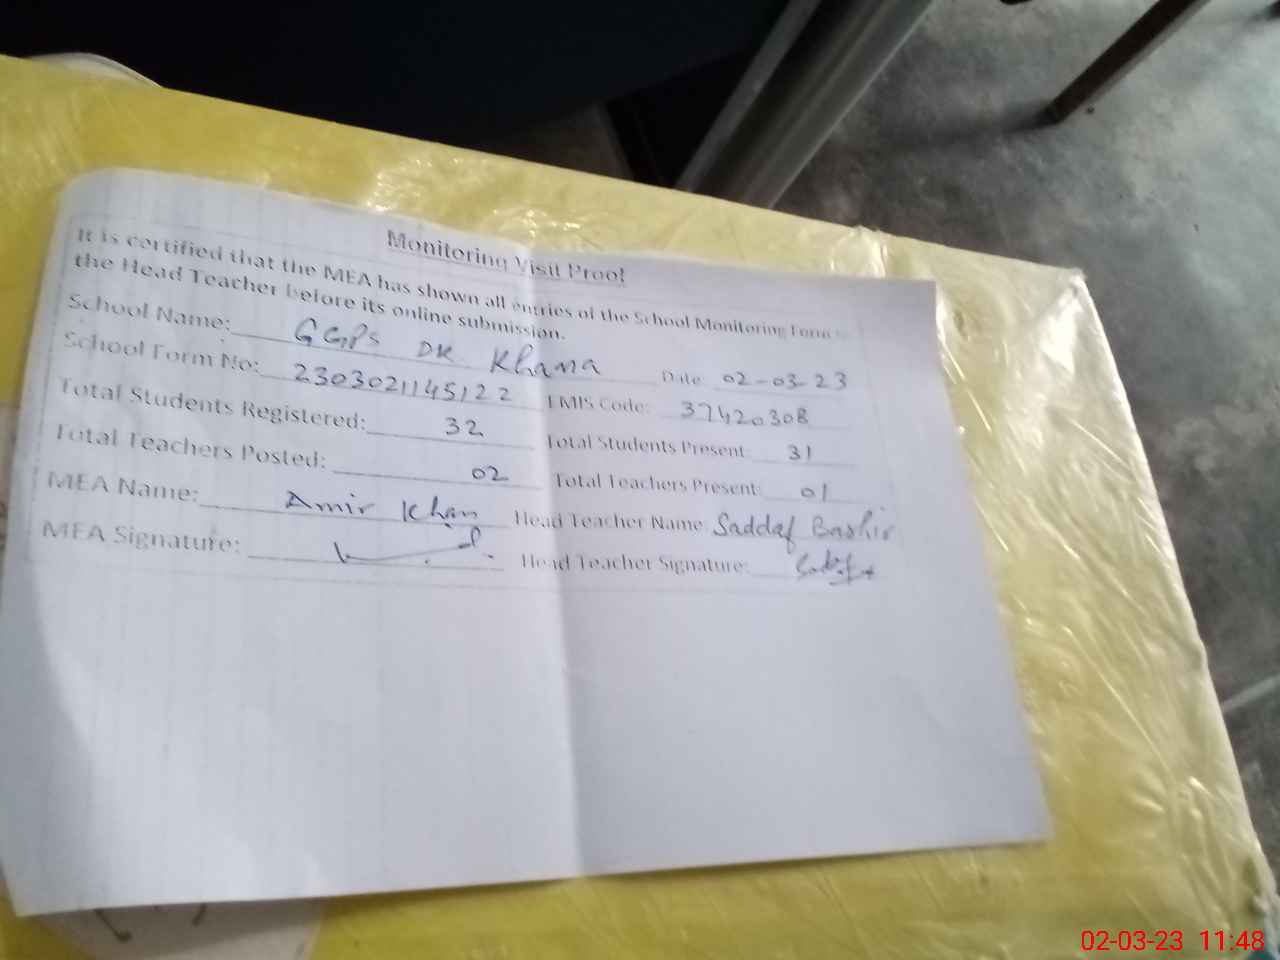 Monitoring Visit Proof
It is certified that the MEA has shown all entries of the School Monitoring Form to
the Head Teacher before its online submission.
School Name: GGPS DK Khana Date: 02-03-23
School Form No: 2303021145122 EMIS Code: 37420308
Total Students Registered: 32 Total Students Present: 31
Total Teachers Posted: 02 Total Teachers Present: 01
MEA Name: Amir Khan Head Teacher Name: Saddaf Bashir
MEA Signature: Head Teacher Signature:
02-03-23 11:48